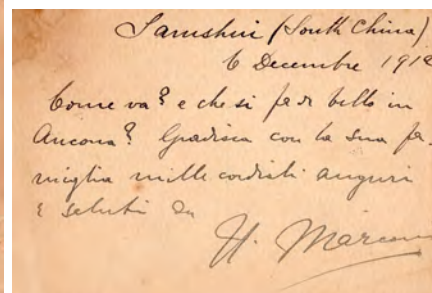 Samshui (South China)
6 Decembre 191
Come va? e che si fa di bello in
Ancona? Gradisca con la sua fa-
miglia mille cordiali auguri
e saluti da
H. Marconi